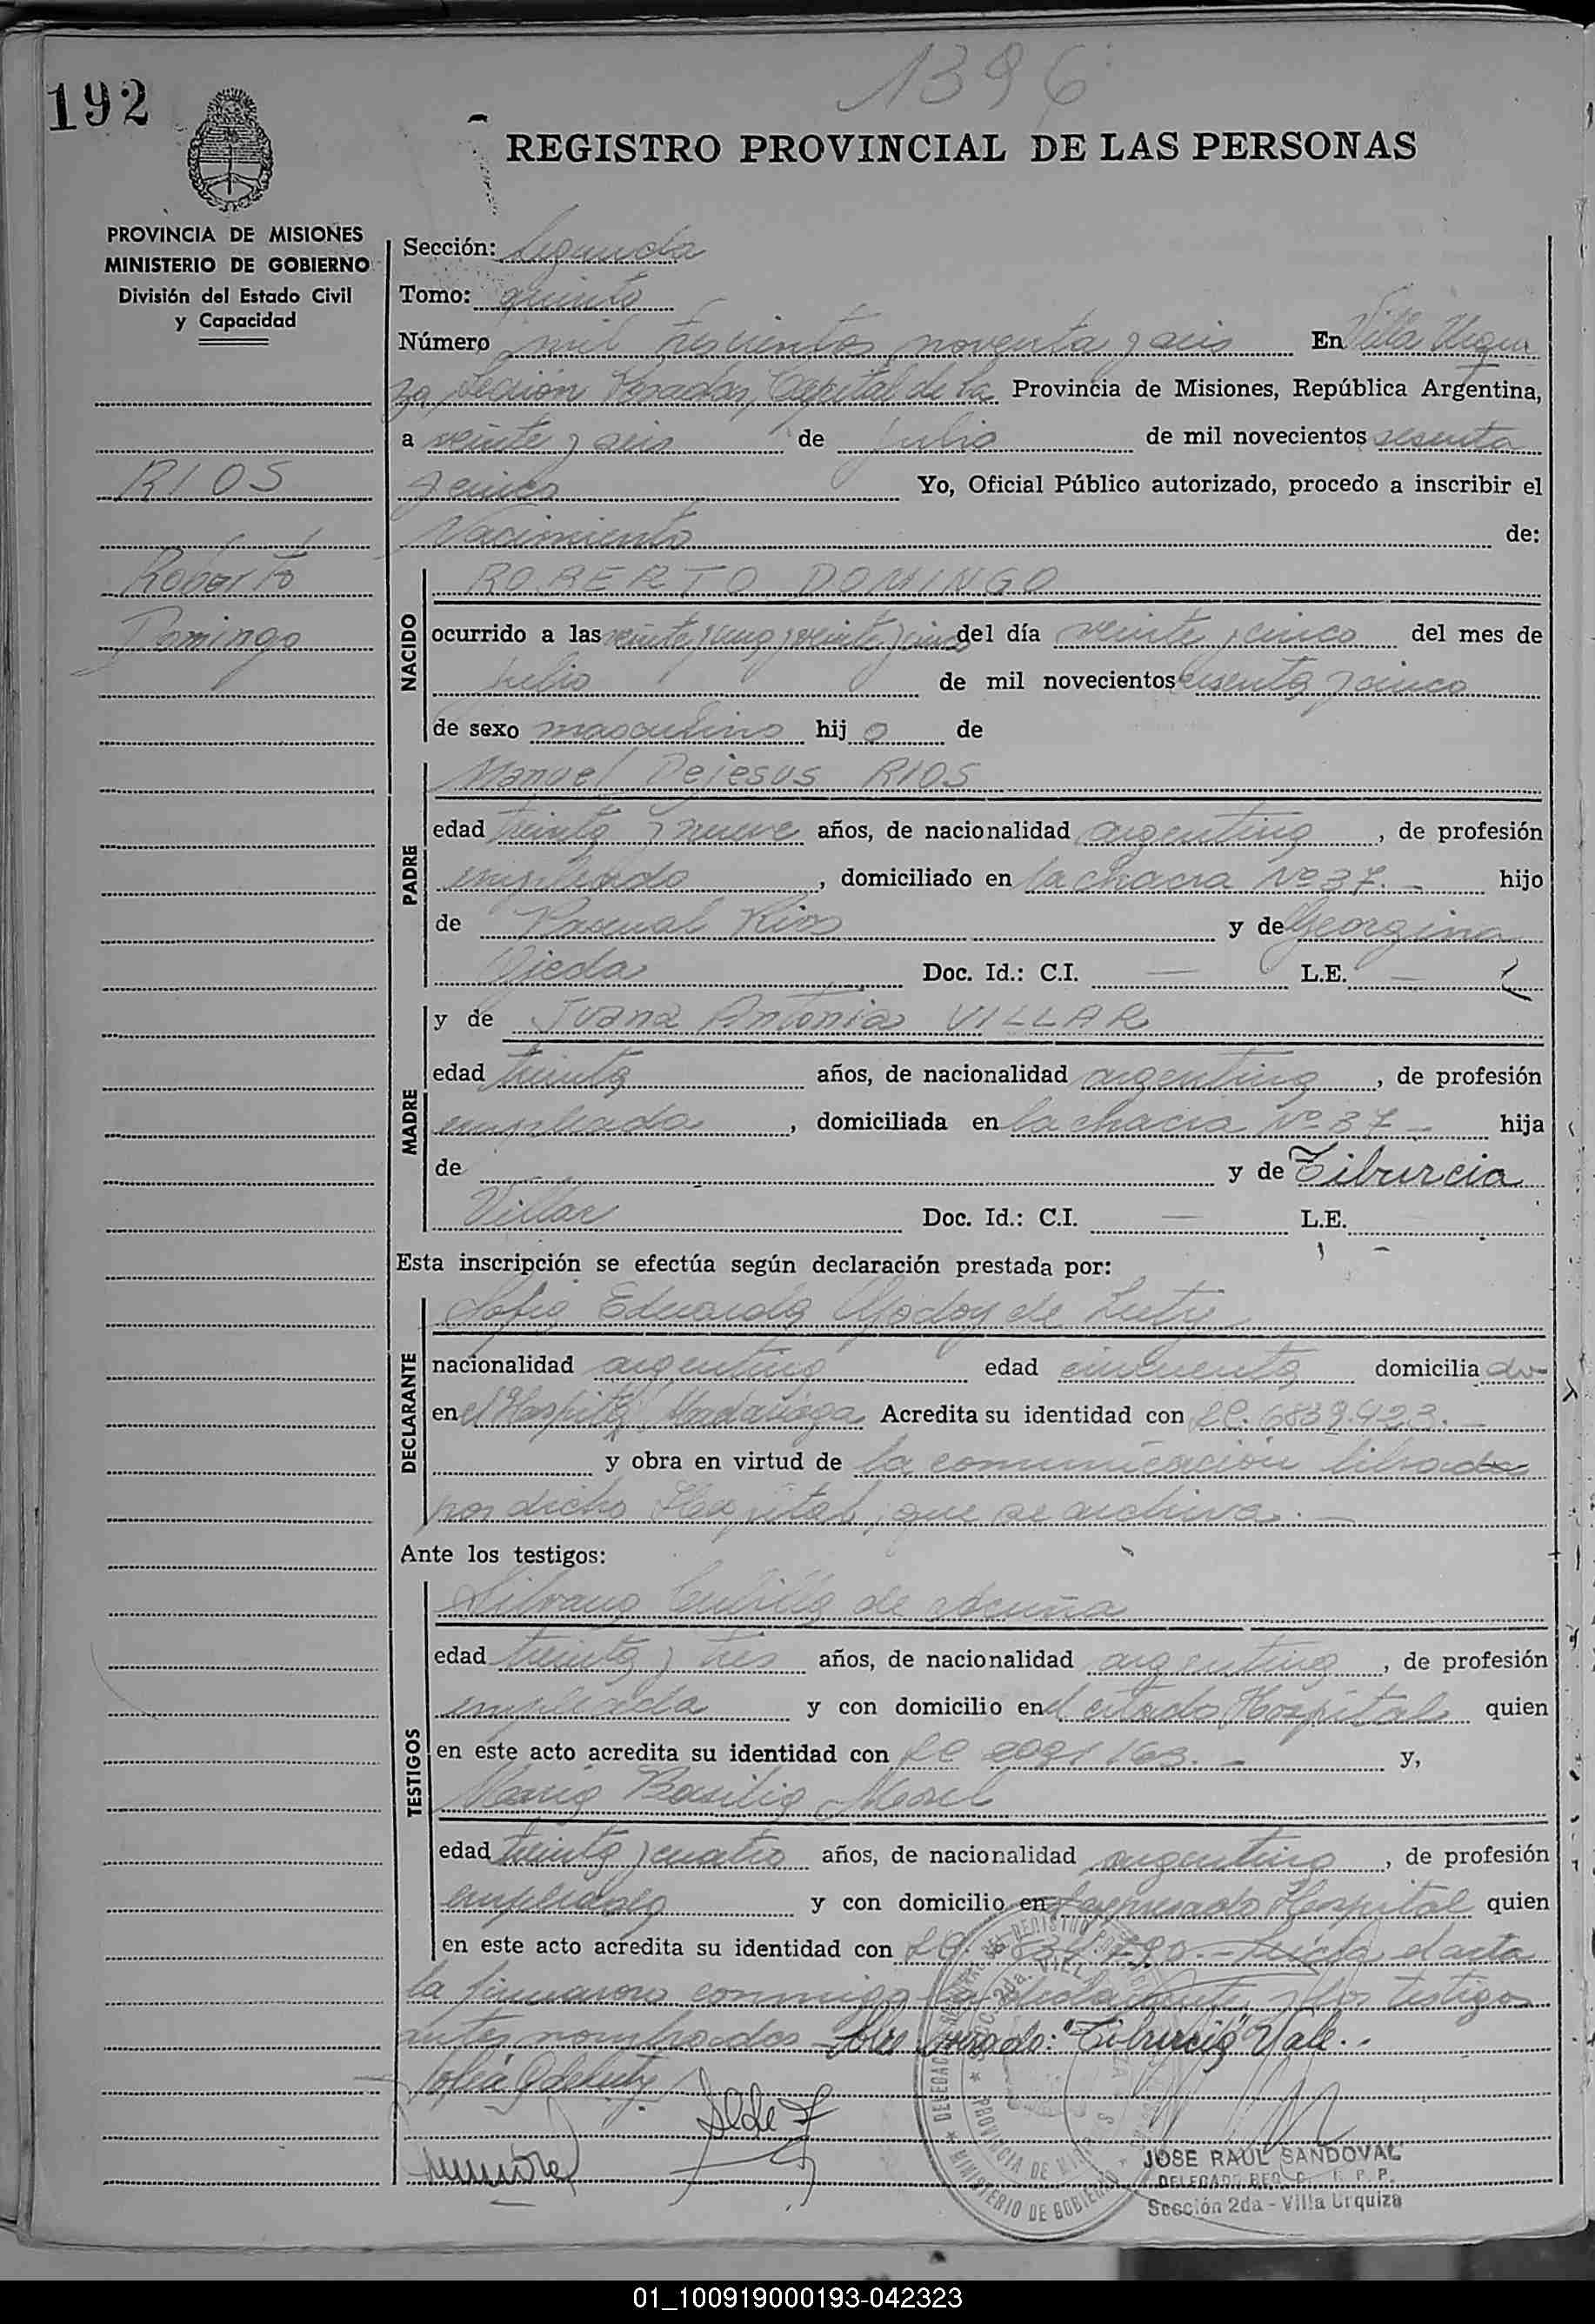 1396
192
REGISTRO PROVINCIAL DE LAS PERSONAS
PROVINCIA DE MISIONES
MINISTERIO DE GOBIERNO
División del Estado Civil
y Capacidad
RIOS
Roberto
Domingo
Sección: Segunda
Tomo: quinto
Número mil trescientos noventa y seis En Villa Urqui
za, Sección Posadas, Capital de la Provincia de Misiones, República Argentina,
a veinte y seis de julio de mil novecientos sesenta
y cinco Yo, Oficial Público autorizado, procedo a inscribir el
Nacimiento de:
NACIDO
ROBERTO DOMINGO
ocurrido a las veinte y una y veinte y cinco del día veinte y cinco del mes de
julio de mil novecientos sesenta y cinco
de sexo masculino hijo de
PADRE
Manuel Dejesus RIOS
edad treinta y nueve años, de nacionalidad argentina, de profesión
empleado, domiciliado en la chacra Nº 37.- hijo
de Pascual Rios y de Georgina
Ojeda Doc. Id.: C.I. — L.E. —
MADRE
y de Juana Antonia VILLAR
edad treinta años, de nacionalidad argentina, de profesión
empleada, domiciliada en la chacra Nº 37 - hija
de y de Tiburcia
Villar Doc. Id.: C.I. — L.E.
Esta inscripción se efectúa según declaración prestada por:
DECLARANTE
Sofia Eduarda Godoy de Luty
nacionalidad argentina edad cincuenta domicilia da
en el Hospital Madariaga Acredita su identidad con LC. 6839.423.-
y obra en virtud de la comunicación librada
por dicho Hospital, que se archiva.-
Ante los testigos:
TESTIGOS
Silvana de Acuña
edad treinta y tres años, de nacionalidad argentina, de profesión
empleada y con domicilio en el citado Hospital quien
en este acto acredita su identidad con LC 2091163.- y,
Maria Basilia Morel
edad treinta y cuatro años, de nacionalidad argentina, de profesión
empleada y con domicilio en el expresado Hospital quien
en este acto acredita su identidad con LC. 790.- Leida el acta
la firmaron conmigo la declarante y los testigos
antes nombrados - Sobre raspado: "Tiburcia" Vale.-
Sofia G de Luty
JOSE RAUL SANDOVAL
Sección 2da - Villa Urquiza
01_100919000193-042323